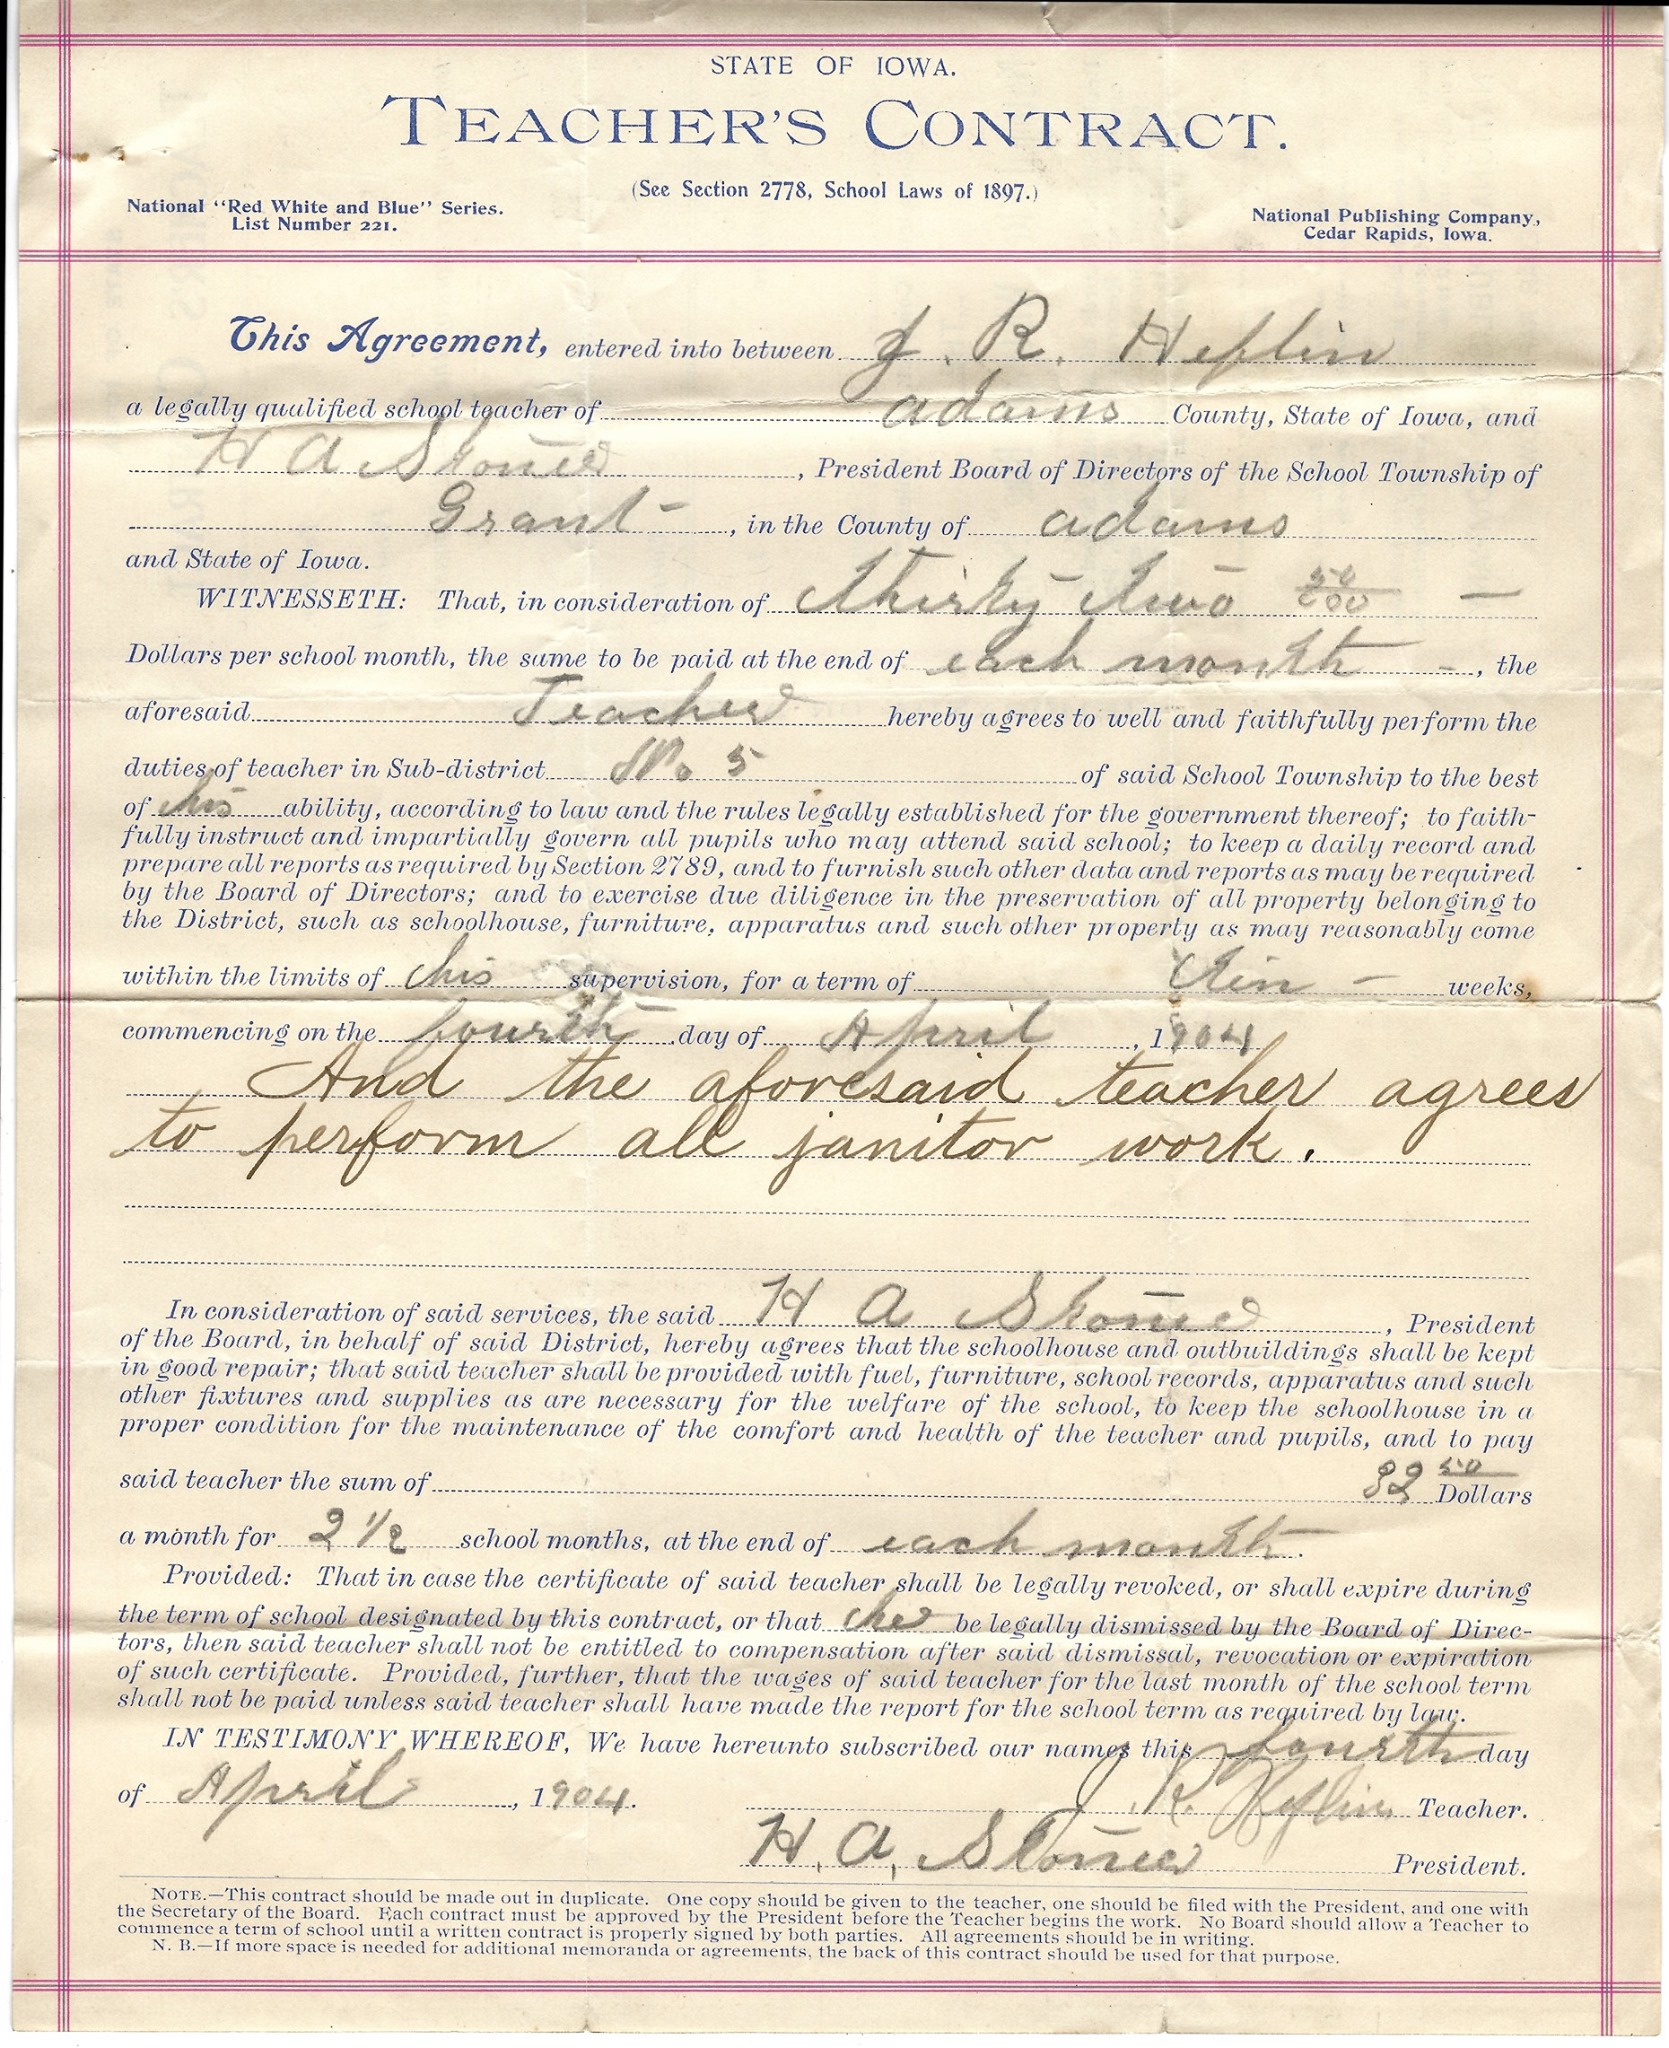 STATE OF IOWA.
TEACHER'S CONTRACT.
(See Section 2778, School Laws of 1897.)
National "Red White and Blue" Series.
List Number 221.
National Publishing Company,
Cedar Rapids, Iowa.
This Agreement, entered into between J. R. Heflin
a legally qualified school teacher of Adams County, State of Iowa, and
H A , President Board of Directors of the School Township of
Grant - , in the County of Adams
and State of Iowa.
WITNESSETH: That, in consideration of Thirty Two 50/100 —
Dollars per school month, the same to be paid at the end of each month - , the
aforesaid Teacher hereby agrees to well and faithfully perform the
duties of teacher in Sub-district No 5 of said School Township to the best
of his ability, according to law and the rules legally established for the government thereof; to faith-
fully instruct and impartially govern all pupils who may attend said school; to keep a daily record and
prepare all reports as required by Section 2789, and to furnish such other data and reports as may be required
by the Board of Directors; and to exercise due diligence in the preservation of all property belonging to
the District, such as schoolhouse, furniture, apparatus and such other property as may reasonably come
within the limits of his supervision, for a term of — weeks,
commencing on the fourth day of April , 1904
And the aforesaid teacher agrees
to perform all janitor work.
In consideration of said services, the said H A , President
of the Board, in behalf of said District, hereby agrees that the schoolhouse and outbuildings shall be kept
in good repair; that said teacher shall be provided with fuel, furniture, school records, apparatus and such
other fixtures and supplies as are necessary for the welfare of the school, to keep the schoolhouse in a
proper condition for the maintenance of the comfort and health of the teacher and pupils, and to pay
said teacher the sum of 32 50 Dollars
a month for 2 1/2 school months, at the end of each month.
Provided: That in case the certificate of said teacher shall be legally revoked, or shall expire during
the term of school designated by this contract, or that he be legally dismissed by the Board of Direc-
tors, then said teacher shall not be entitled to compensation after said dismissal, revocation or expiration
of such certificate. Provided, further, that the wages of said teacher for the last month of the school term
shall not be paid unless said teacher shall have made the report for the school term as required by law.
IN TESTIMONY WHEREOF, We have hereunto subscribed our names this fourth day
of April , 1904. J. R. Heflin Teacher.
H. A. President.
NOTE.—This contract should be made out in duplicate. One copy should be given to the teacher, one should be filed with the President, and one with
the Secretary of the Board. Each contract must be approved by the President before the Teacher begins the work. No Board should allow a Teacher to
commence a term of school until a written contract is properly signed by both parties. All agreements should be in writing.
N. B.—If more space is needed for additional memoranda or agreements, the back of this contract should be used for that purpose.